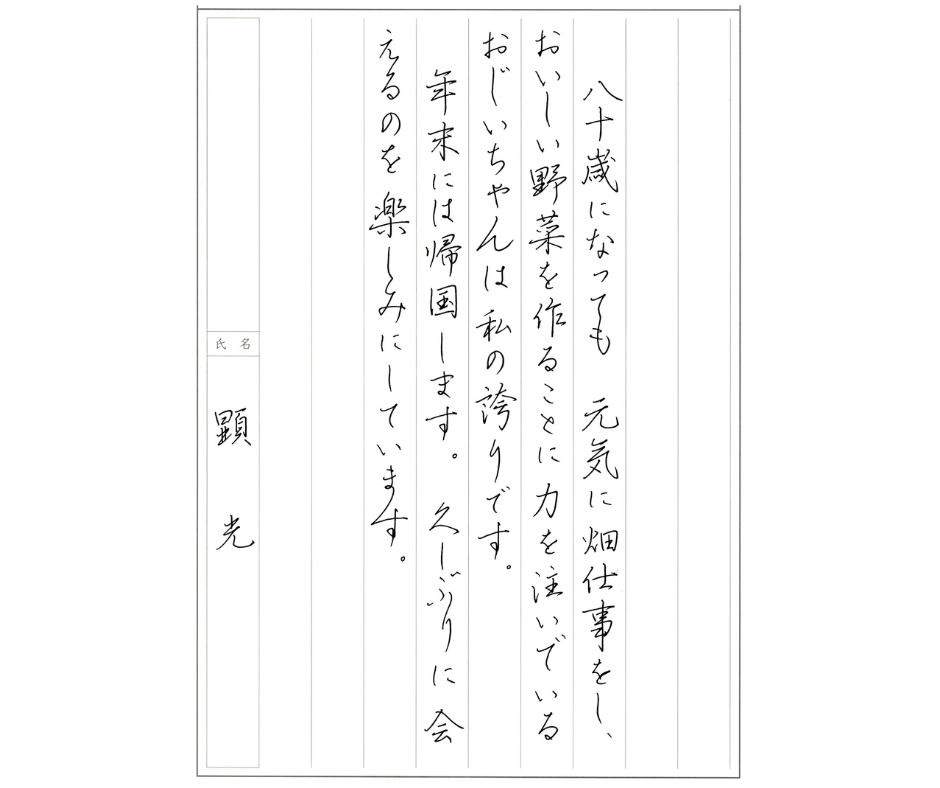 八十歳になっても 元気に畑仕事をし、
おいしい野菜を作ることに力を注いでいる
おじいちゃんは私の誇りです。
年末には帰国します。 久しぶりに会
えるのを楽しみにしています。
氏名 顕光